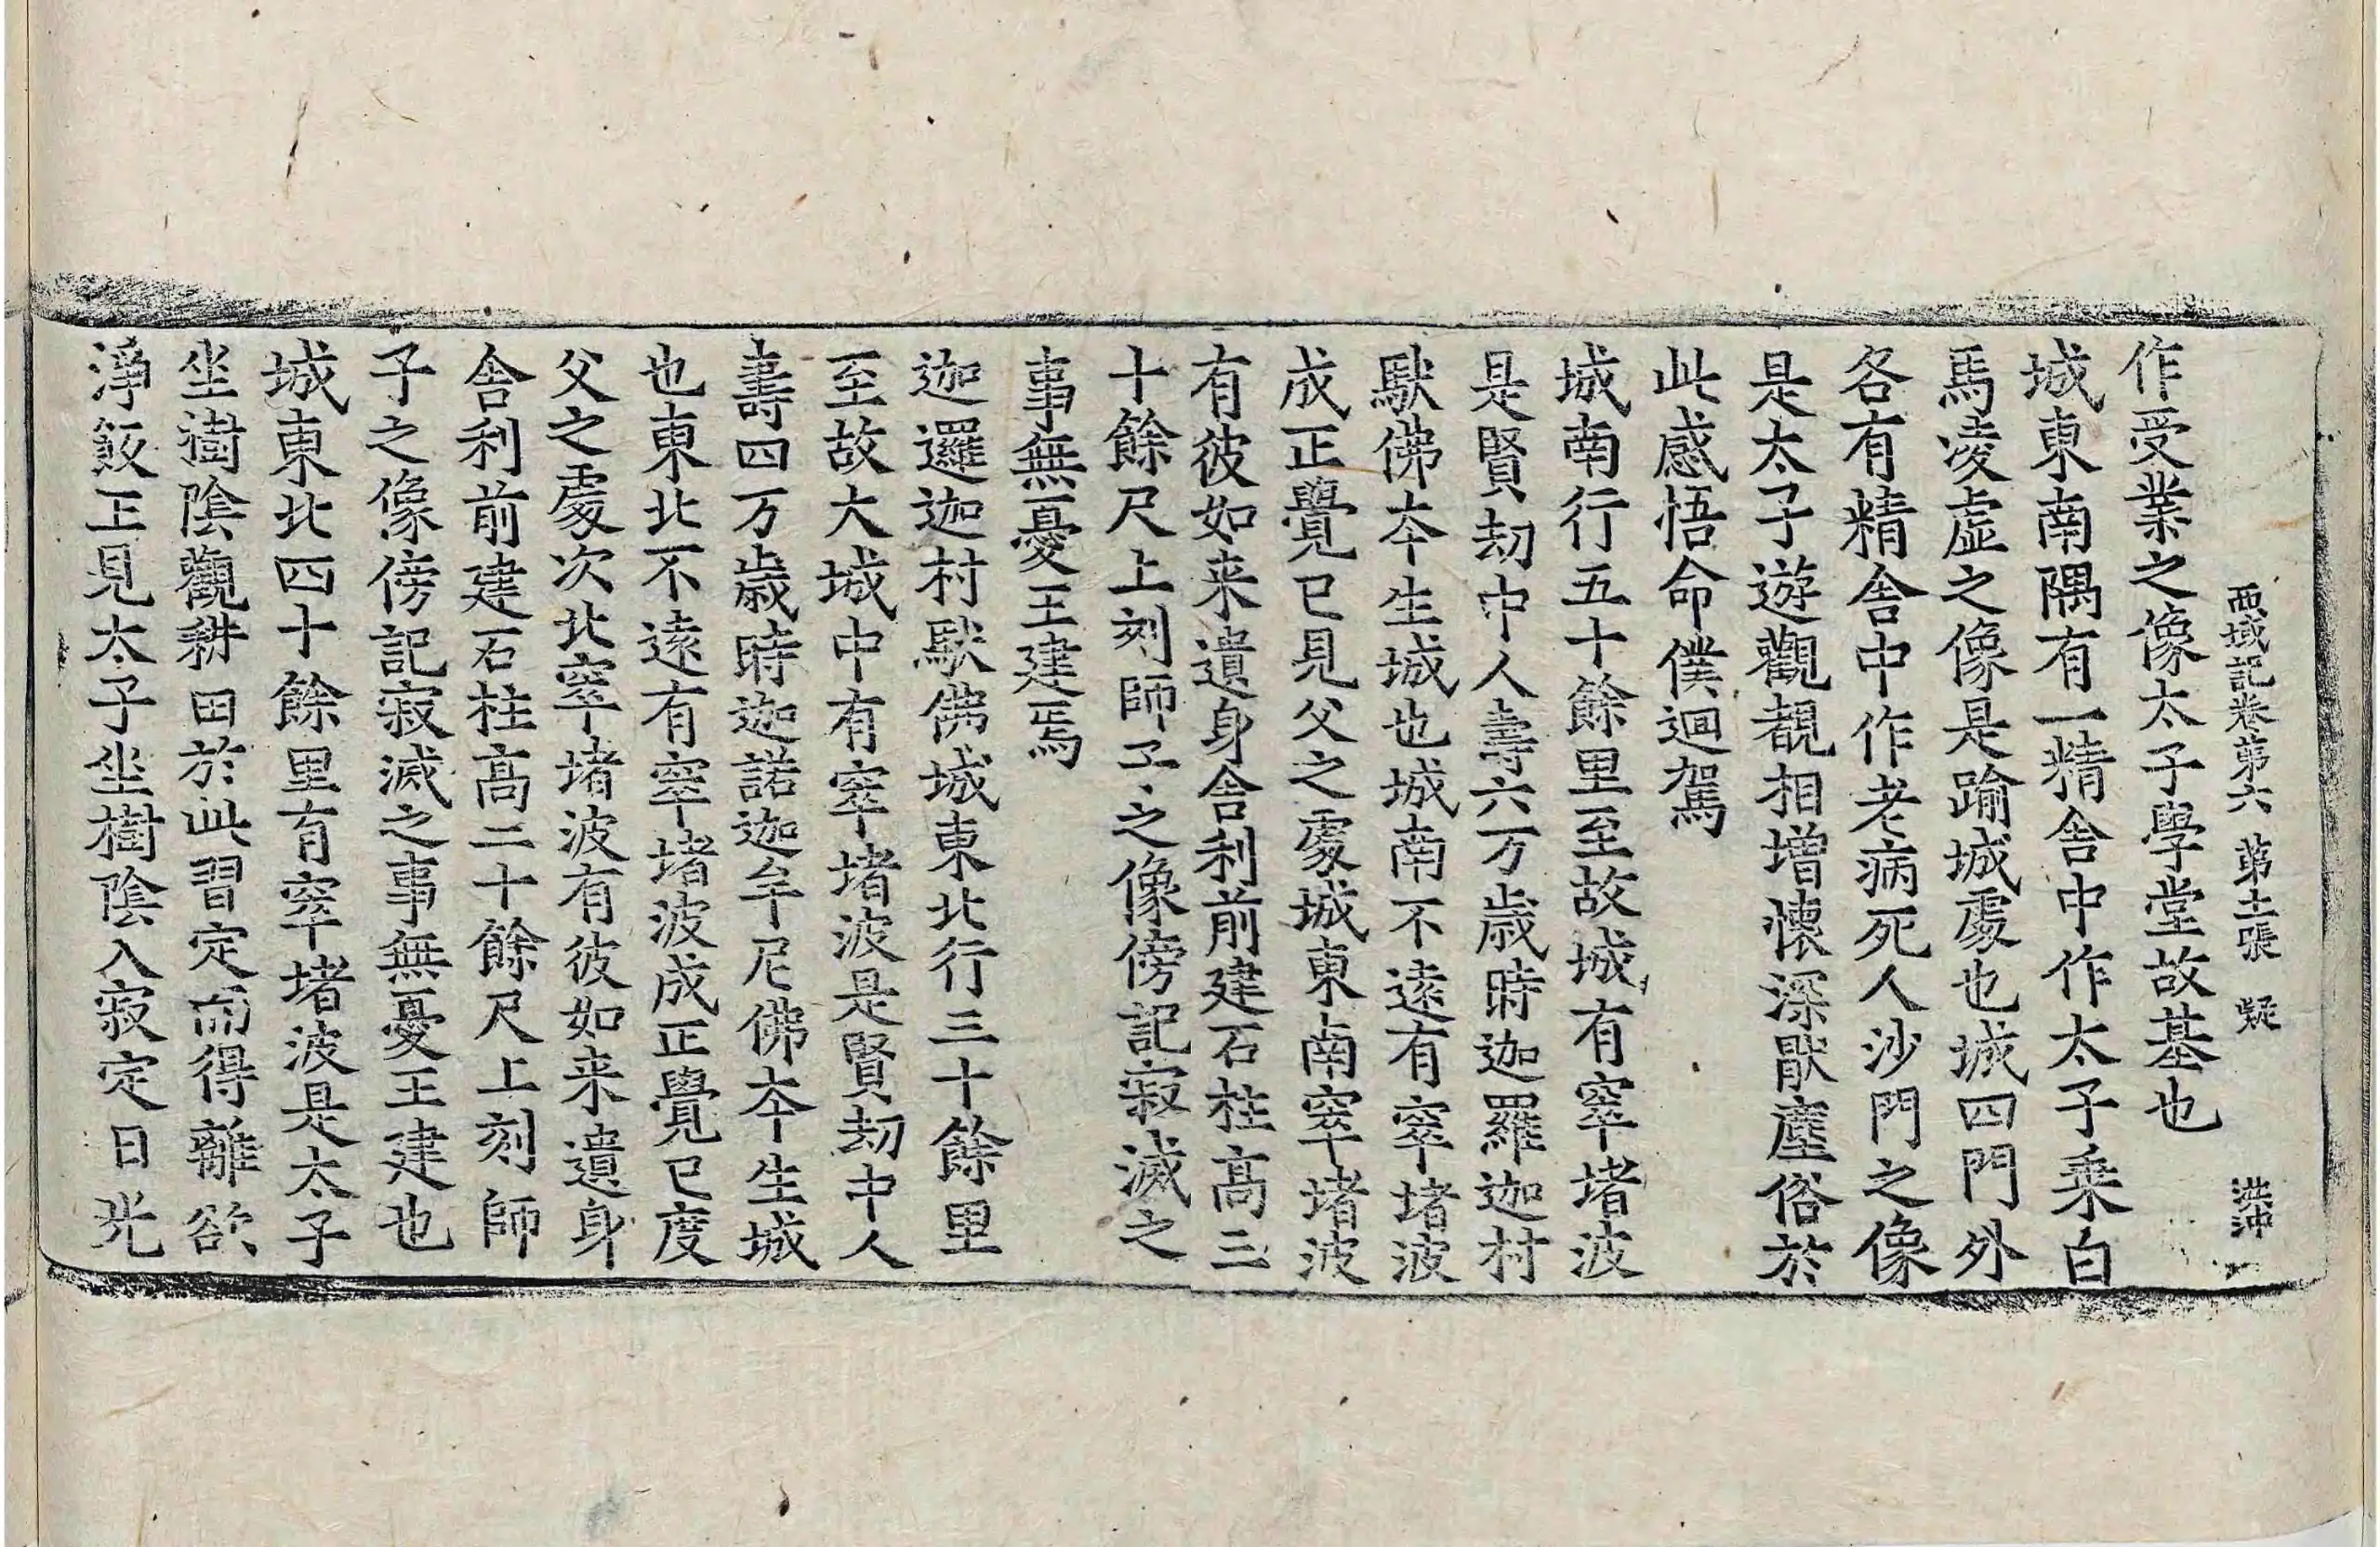 西域記卷第六 第土張 疑 洪沖
作受業之像太子學堂故基也
城東南隅有一精舍中作太子乗白
馬凌虛之像是踰城處也城四門外
各有精舍中作老病死人沙門之像
是太子遊觀覩相增懷深猒塵俗於
此感悟命僕迴駕
城南行五十餘里至故城有窣堵波
是賢劫中人壽六万歲時迦羅迦村
馱佛夲生城也城南不遠有窣堵波
成正覺已見父之處城東南窣堵波
有彼如来遺身舍利前建石柱髙三
十餘尺上刻師子之像傍記寂滅之
事無憂王建焉
迦邏迦村馱佛城東北行三十餘里
至故大城中有窣堵波是賢劫中人
壽四万歲時迦諾迦牟尼佛夲生城
也東北不遠有窣堵波成正覺已度
父之處次北窣堵波有彼如来遺身
舍利前建石柱髙二十餘尺上刻師
子之像傍記寂滅之事無憂王建也
城東北四十餘里有窣堵波是太子
坐樹陰觀耕田於此習定而得離欲
淨飯王見太子坐樹陰入寂定日光